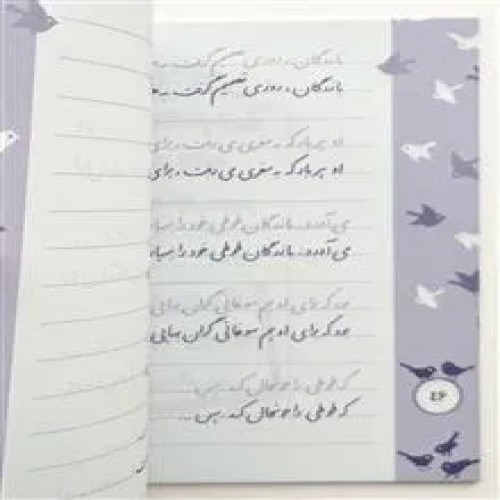 بازرگان، روزی تصمیم گرفت به
بازرگان، روزی تصمیم گرفت به
او هر بار که به سفری می رفت، برای
او هر بار که به سفری می رفت، برای
می آورد. بازرگان طوطی خود را بسیار
می آورد. بازرگان طوطی خود را بسیار
بود که برای او هم سوغاتی گران بهایی
بود که برای او هم سوغاتی گران بهایی
که طوطی را خوشحال کند. پس
که طوطی را خوشحال کند. پس
۴۶